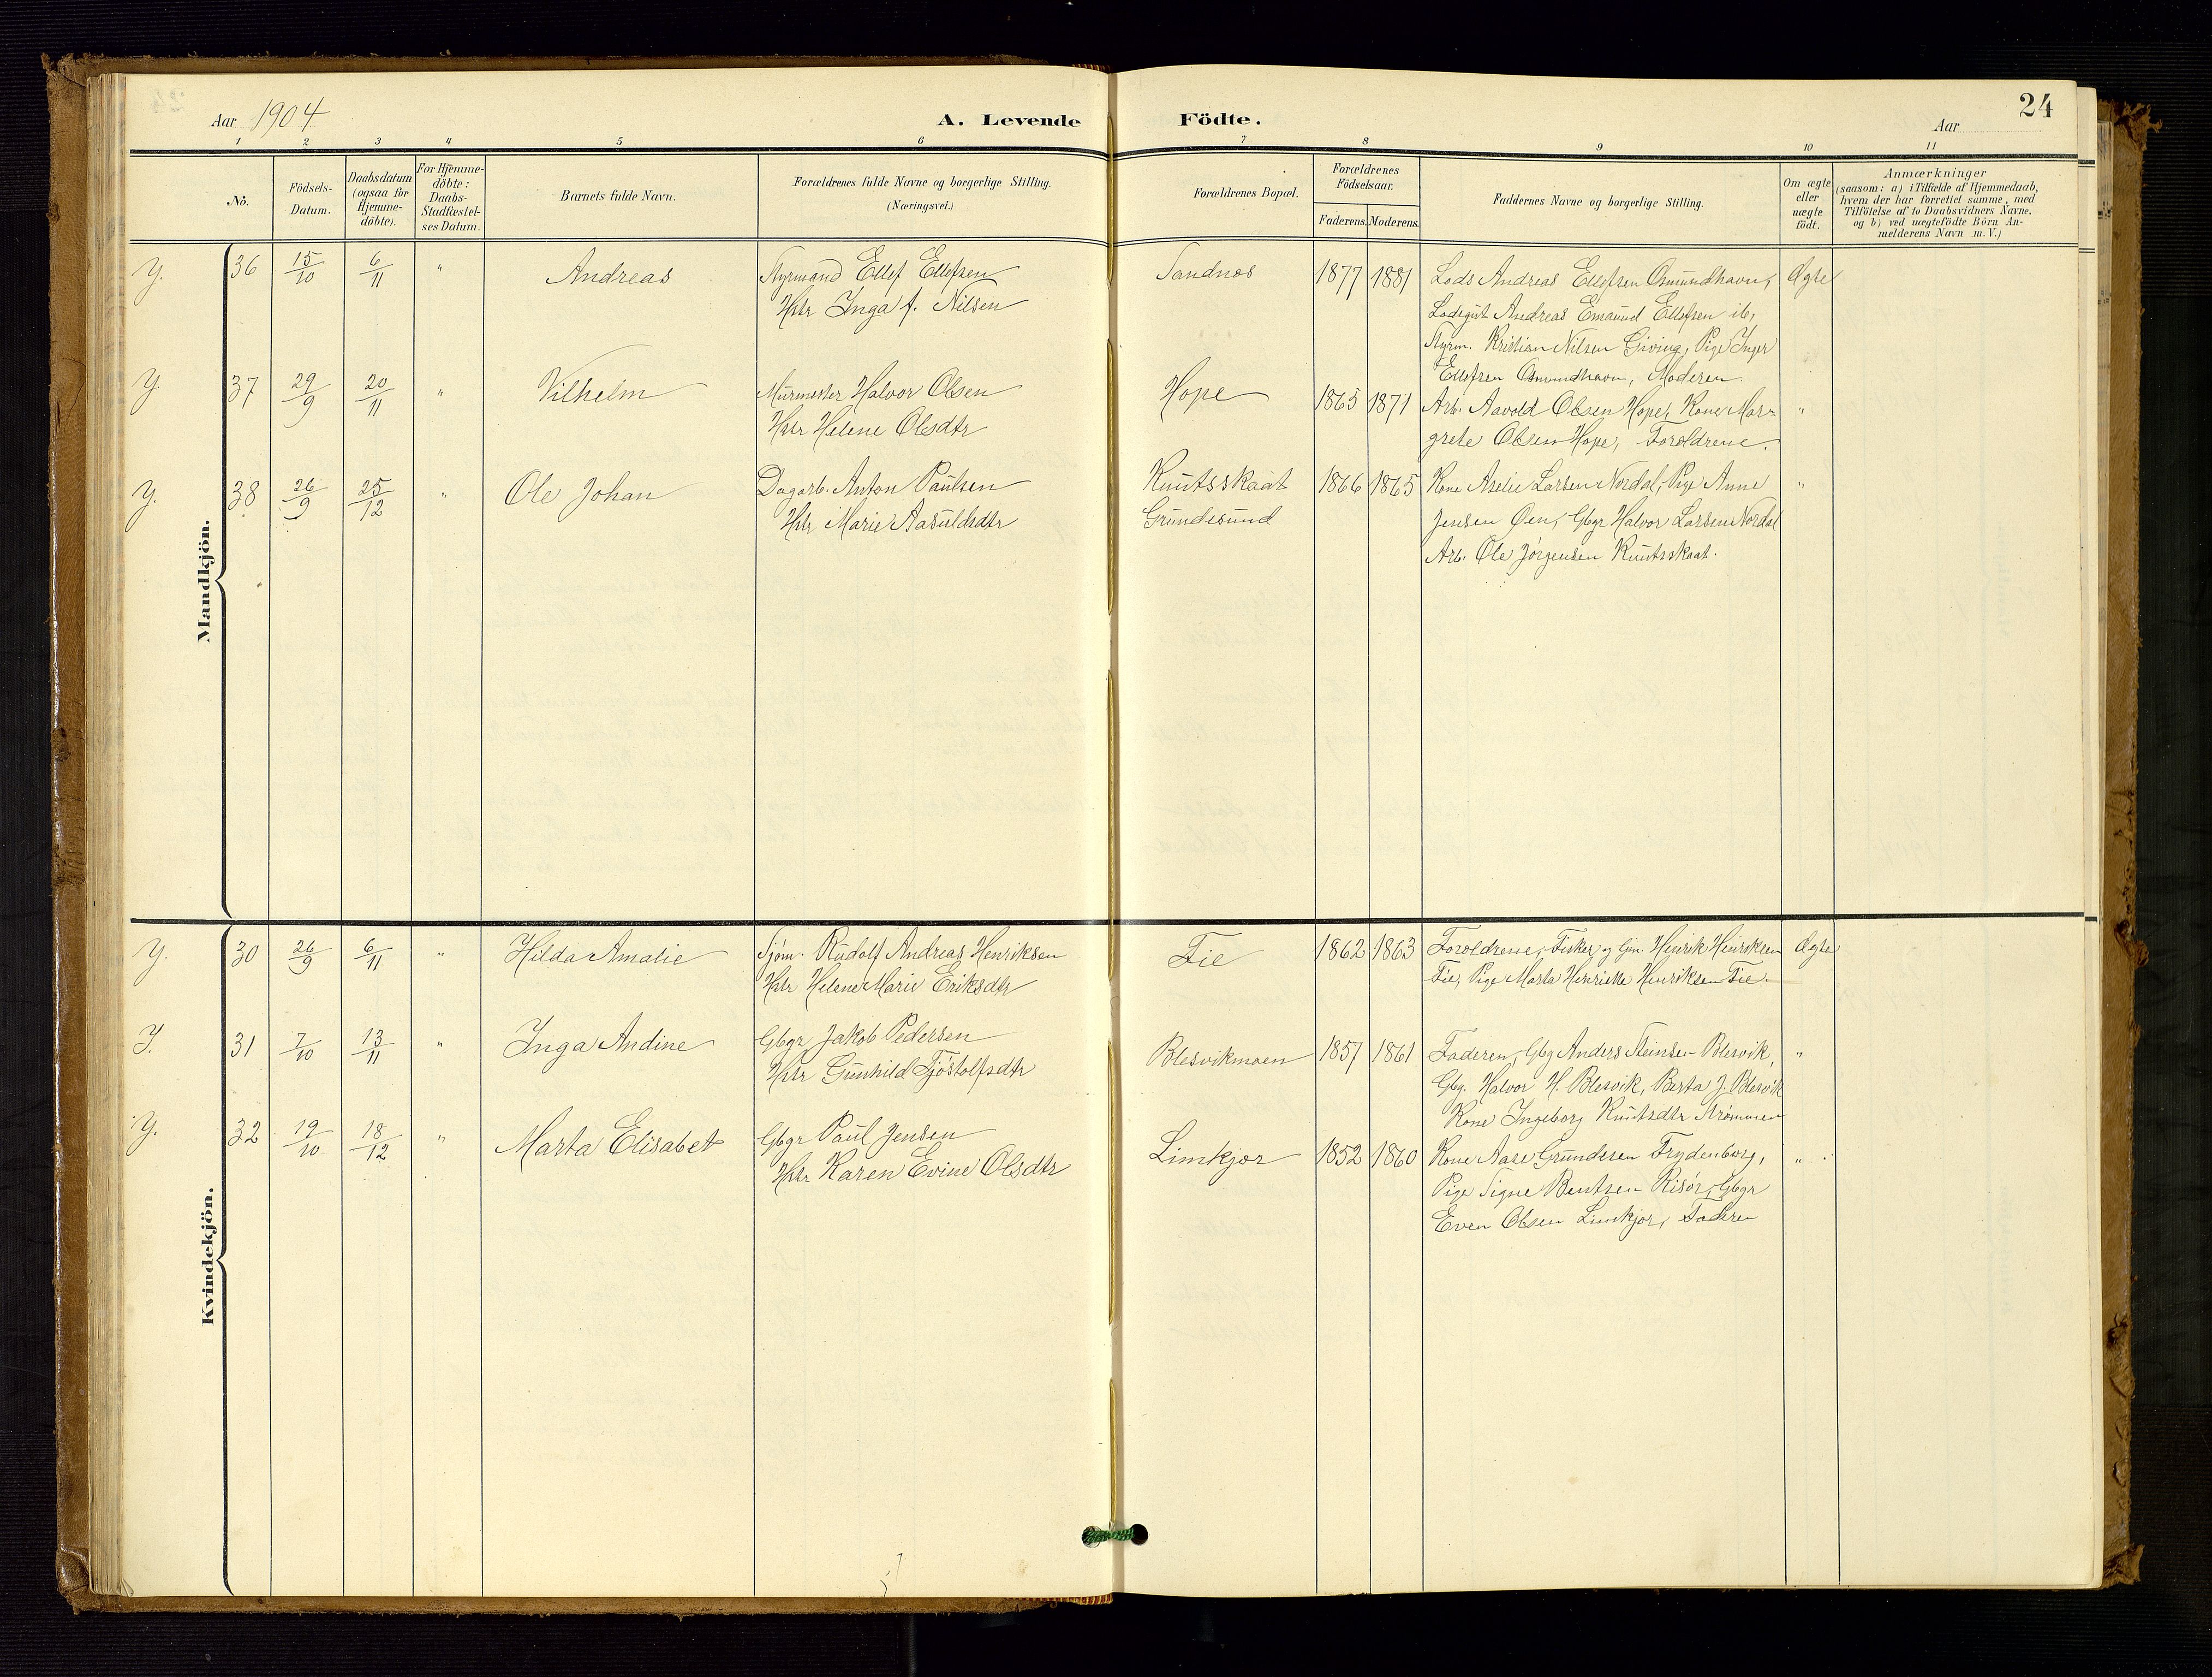 24
Aar 1904
A. Levende Födte.
Aar
1 2 3 4 5 6 7 8 9 10 11
No.
Födsels-
Datum.
Daabsdatum
(ogsaa for
Hjemme-
döbte).
For Hjemme-
döbte:
Daabs-
Stadfæstel-
ses Datum.
Barnets fulde Navn.
Forældrenes fulde Navne og borgerlige Stilling.
(Næringsvei.)
Forældrenes Bopæl.
Forældrenes
Födselsaar.
Faderens. Moderens.
Faddernes Navne og borgerlige Stilling.
Om ægte
eller
uægte
födt.
Anmærkninger
(saasom: a) i Tilfælde af Hjemmedaab,
hvem der har forrettet samme, med
Tilföielse af to Daabsvidners Navne,
og b) ved uægtefödte Börn An-
melderens Navn m. V.)
Mandkjön.
Y. 36 15/10 6/11 " Andreas Styrmand Ellef Ellefsen Sandnes 1877 1881 Lods Andreas Ellefsen Osmundhavn, Ægte
Hstr Inga f. Nilsen Lodsgut Andreas Emaund Ellefsen ib,
Styrm. Kristian Nilsen Giving, Pige Inger
Ellefsen Osmundhavn, Moderen.
Y. 37 29/9 20/11 " Vilhelm Murmester Halvor Olsen Hope 1865 1871 Arb. Aavold Olsen Hope, Kone Mar-
Hstr Helene Olsdtr grete Olsen Hope, Forældrene. "
Y. 38 26/9 25/12 " Ole Johan Dagarb. Anton Paulsen Knutsskaat 1866 1865 Kone Aselie Larsen Nordal, Pige Anne "
Hstr Marie Aasuldsdtr Grundesund Jensen Øen, Gbgr Halvor Larsen Nordal
Arb. Ole Jörgensen Knutsskaat.
Kvindekjön.
Y. 30 26/9 6/11 " Hilda Amalie Sjöm. Rudolf Andreas Henriksen Fie 1862 1863 Forældrene, Fisker og Gm. Henrik Henriksen Ægte
Hstr Helene Marie Eriksdtr Fie, Pige Marta Henriette Henriksen Fie.
Y. 31 7/10 13/11 " Inga Andine Gbgr Jakob Pedersen Blesvikmoen 1857 1861 Faderen, Gbg Anders Steinsen Blesvik, "
Hstr Gunhild Tjöstolfsdtr Gbg. Halvor H. Blesvik, Berta J. Blesvik
Kone Ingeborg Knutsdtr Strömmen
Y. 32 19/10 18/12 " Marta Elisabet Gbgr Paul Jensen Limkjær 1852 1860 Kone Aase Grundesen Frydenborg, "
Hstr Karen Evine Olsdtr Pige Signe Bentsen Risör, Gbgr
Even Olsen Limkjær, Faderen